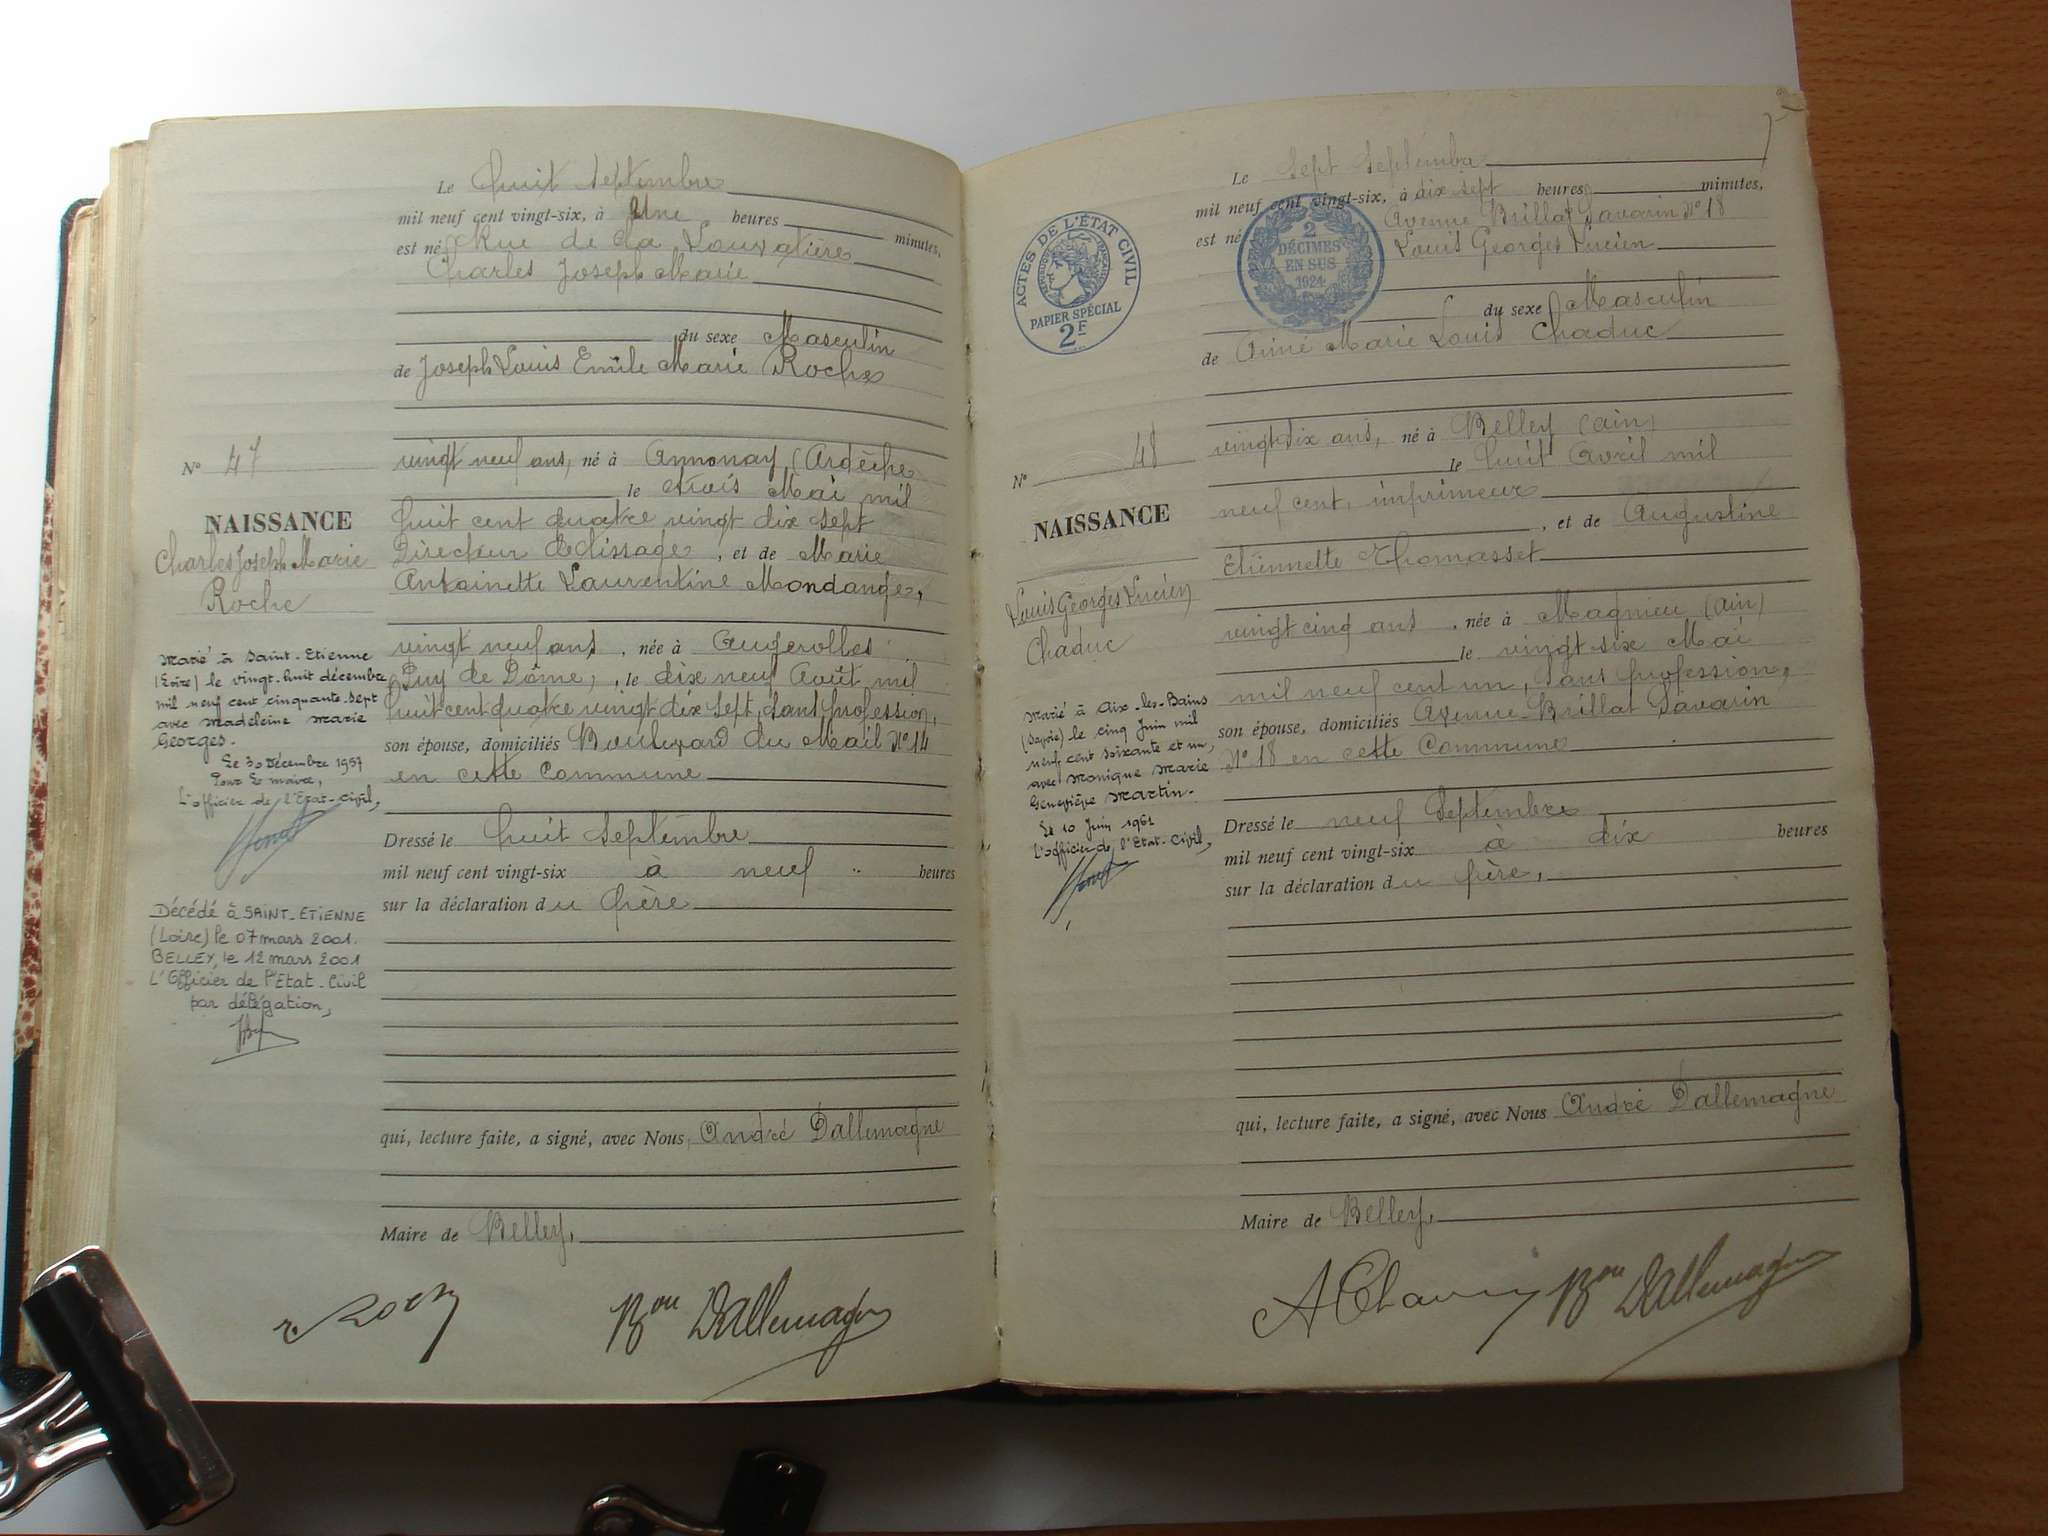 Le huit septembre
mil neuf cent vingt-six, à une heures
minutes,
est né Rue de la Louvatière
Charles Joseph Marie
du sexe Masculin
de Joseph Louis Emile Marie Roche
N° 47
NAISSANCE
Charles Joseph Marie
Roche
vingt neuf ans, né à Annonay (Ardèche
le trois Mai mil
huit cent quatre vingt dix sept
Directeur de tissage, et de Marie
Antoinette Laurentine Mondange,
vingt neuf ans, née à Augerolles
Puy de Dôme, le dix neuf Août mil
huit cent quatre vingt dix sept, sans profession,
son épouse, domiciliés Boulevard du Mail N° 14
en cette commune
Marié à Saint-Etienne
(Loire) le vingt-huit décembre
mil neuf cent cinquante-sept
avec Madeleine Marie
Georges.
Le 30 Décembre 1957
Pour le maire,
L'officier de l'Etat-civil,
Dressé le huit septembre
mil neuf cent vingt-six à neuf heures
sur la déclaration du père
Décédé à SAINT-ETIENNE
(Loire) le 07 mars 2001.
BELLEY, le 12 mars 2001
L'Officier de l'Etat-Civil
par délégation,
qui, lecture faite, a signé, avec Nous, André Dallemagne
Maire de Belley,
Bon Dallemagne
ACTES DE L'ÉTAT CIVIL
PAPIER SPÉCIAL
2F
2
DÉCIMES
EN SUS
1924
Le sept septembre
mil neuf cent vingt-six, à dix sept heures minutes,
est né Avenue Brillat Savarin N° 18
Louis Georges Lucien
du sexe Masculin
de Aimé Marie Louis Chaduc
N° 48
NAISSANCE
Louis Georges Lucien
Chaduc
vingt-six ans, né à Belley (ain)
le huit Avril mil
neuf cent, imprimeur
, et de Augustine
Etiennette Thomasset
vingt cinq ans, née à Magnieu (ain)
le vingt six Mai
mil neuf cent un, sans profession,
son épouse, domiciliés Avenue Brillat Savarin
N° 18 en cette commune
Marié à Aix-les-Bains
(Savoie) le cinq Juin mil
neuf cent soixante et un,
avec Monique Marie
Geneviève Martin.
Le 10 Juin 1961
L'officier de l'Etat-Civil,
Dressé le neuf septembre
mil neuf cent vingt-six à dix heures
sur la déclaration du père,
qui, lecture faite, a signé, avec Nous André Dallemagne
Maire de Belley,
Bon Dallemagne